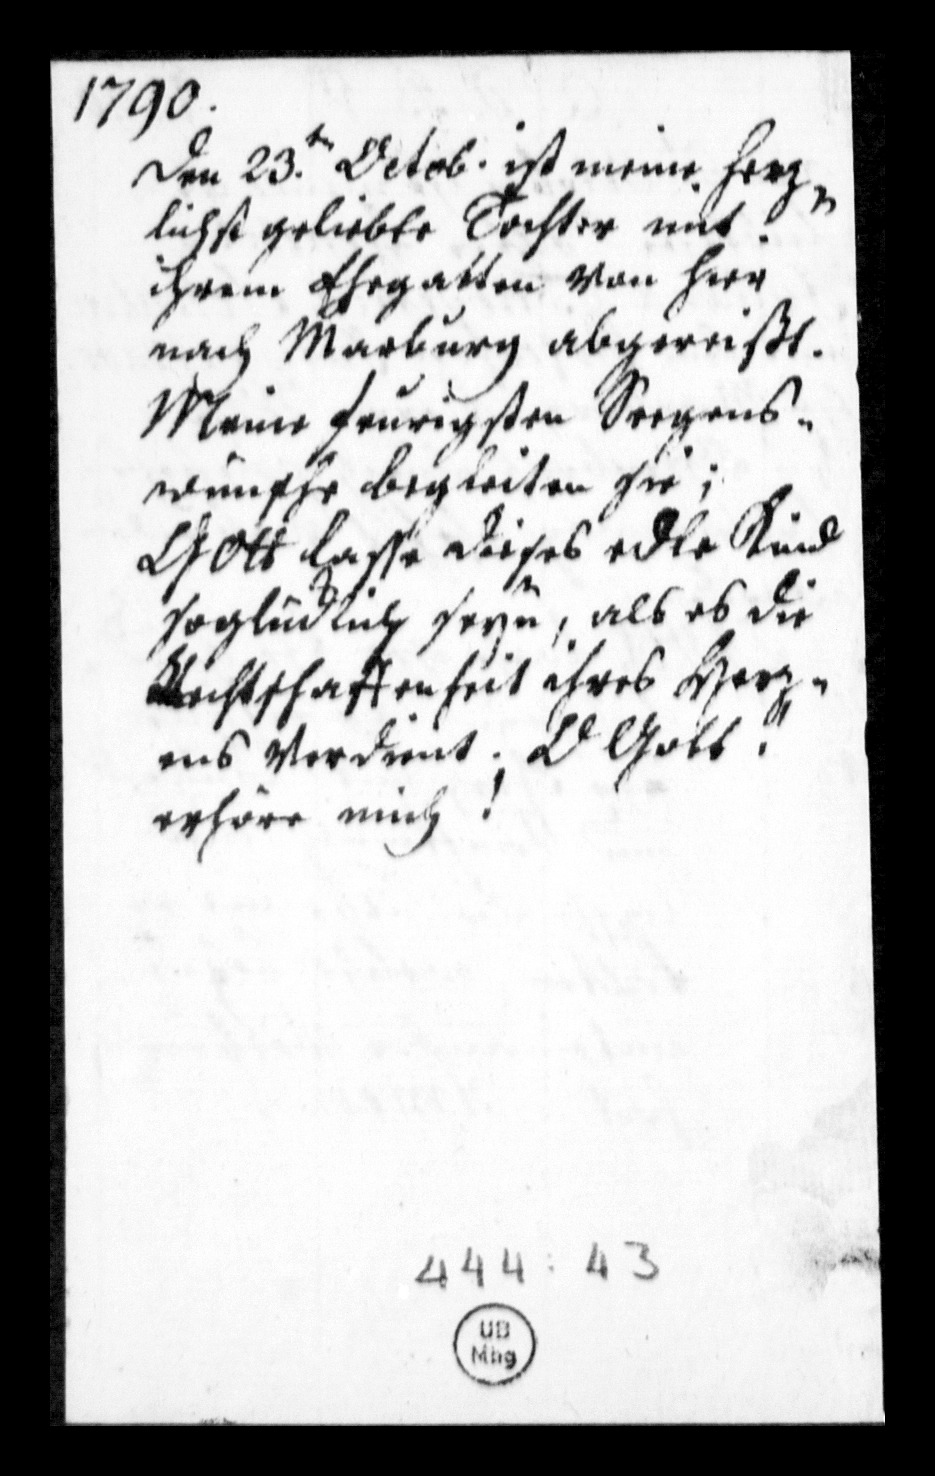 1790.
Den 23.ten Octob. ist meine herz=
lichst geliebte Tochter mit
ihrem Ehegatten von hier
nach Marburg abgereißt.
Meine feurigsten Seegens=
wünsche begleiten sie;
GOtt lasse dieses edle Kind
so glücklich seyn, als es die
Rechtschaffenheit ihres Herz=
ens verdient. O Gott!
erhöre mich!
444:43
UB
Mbg